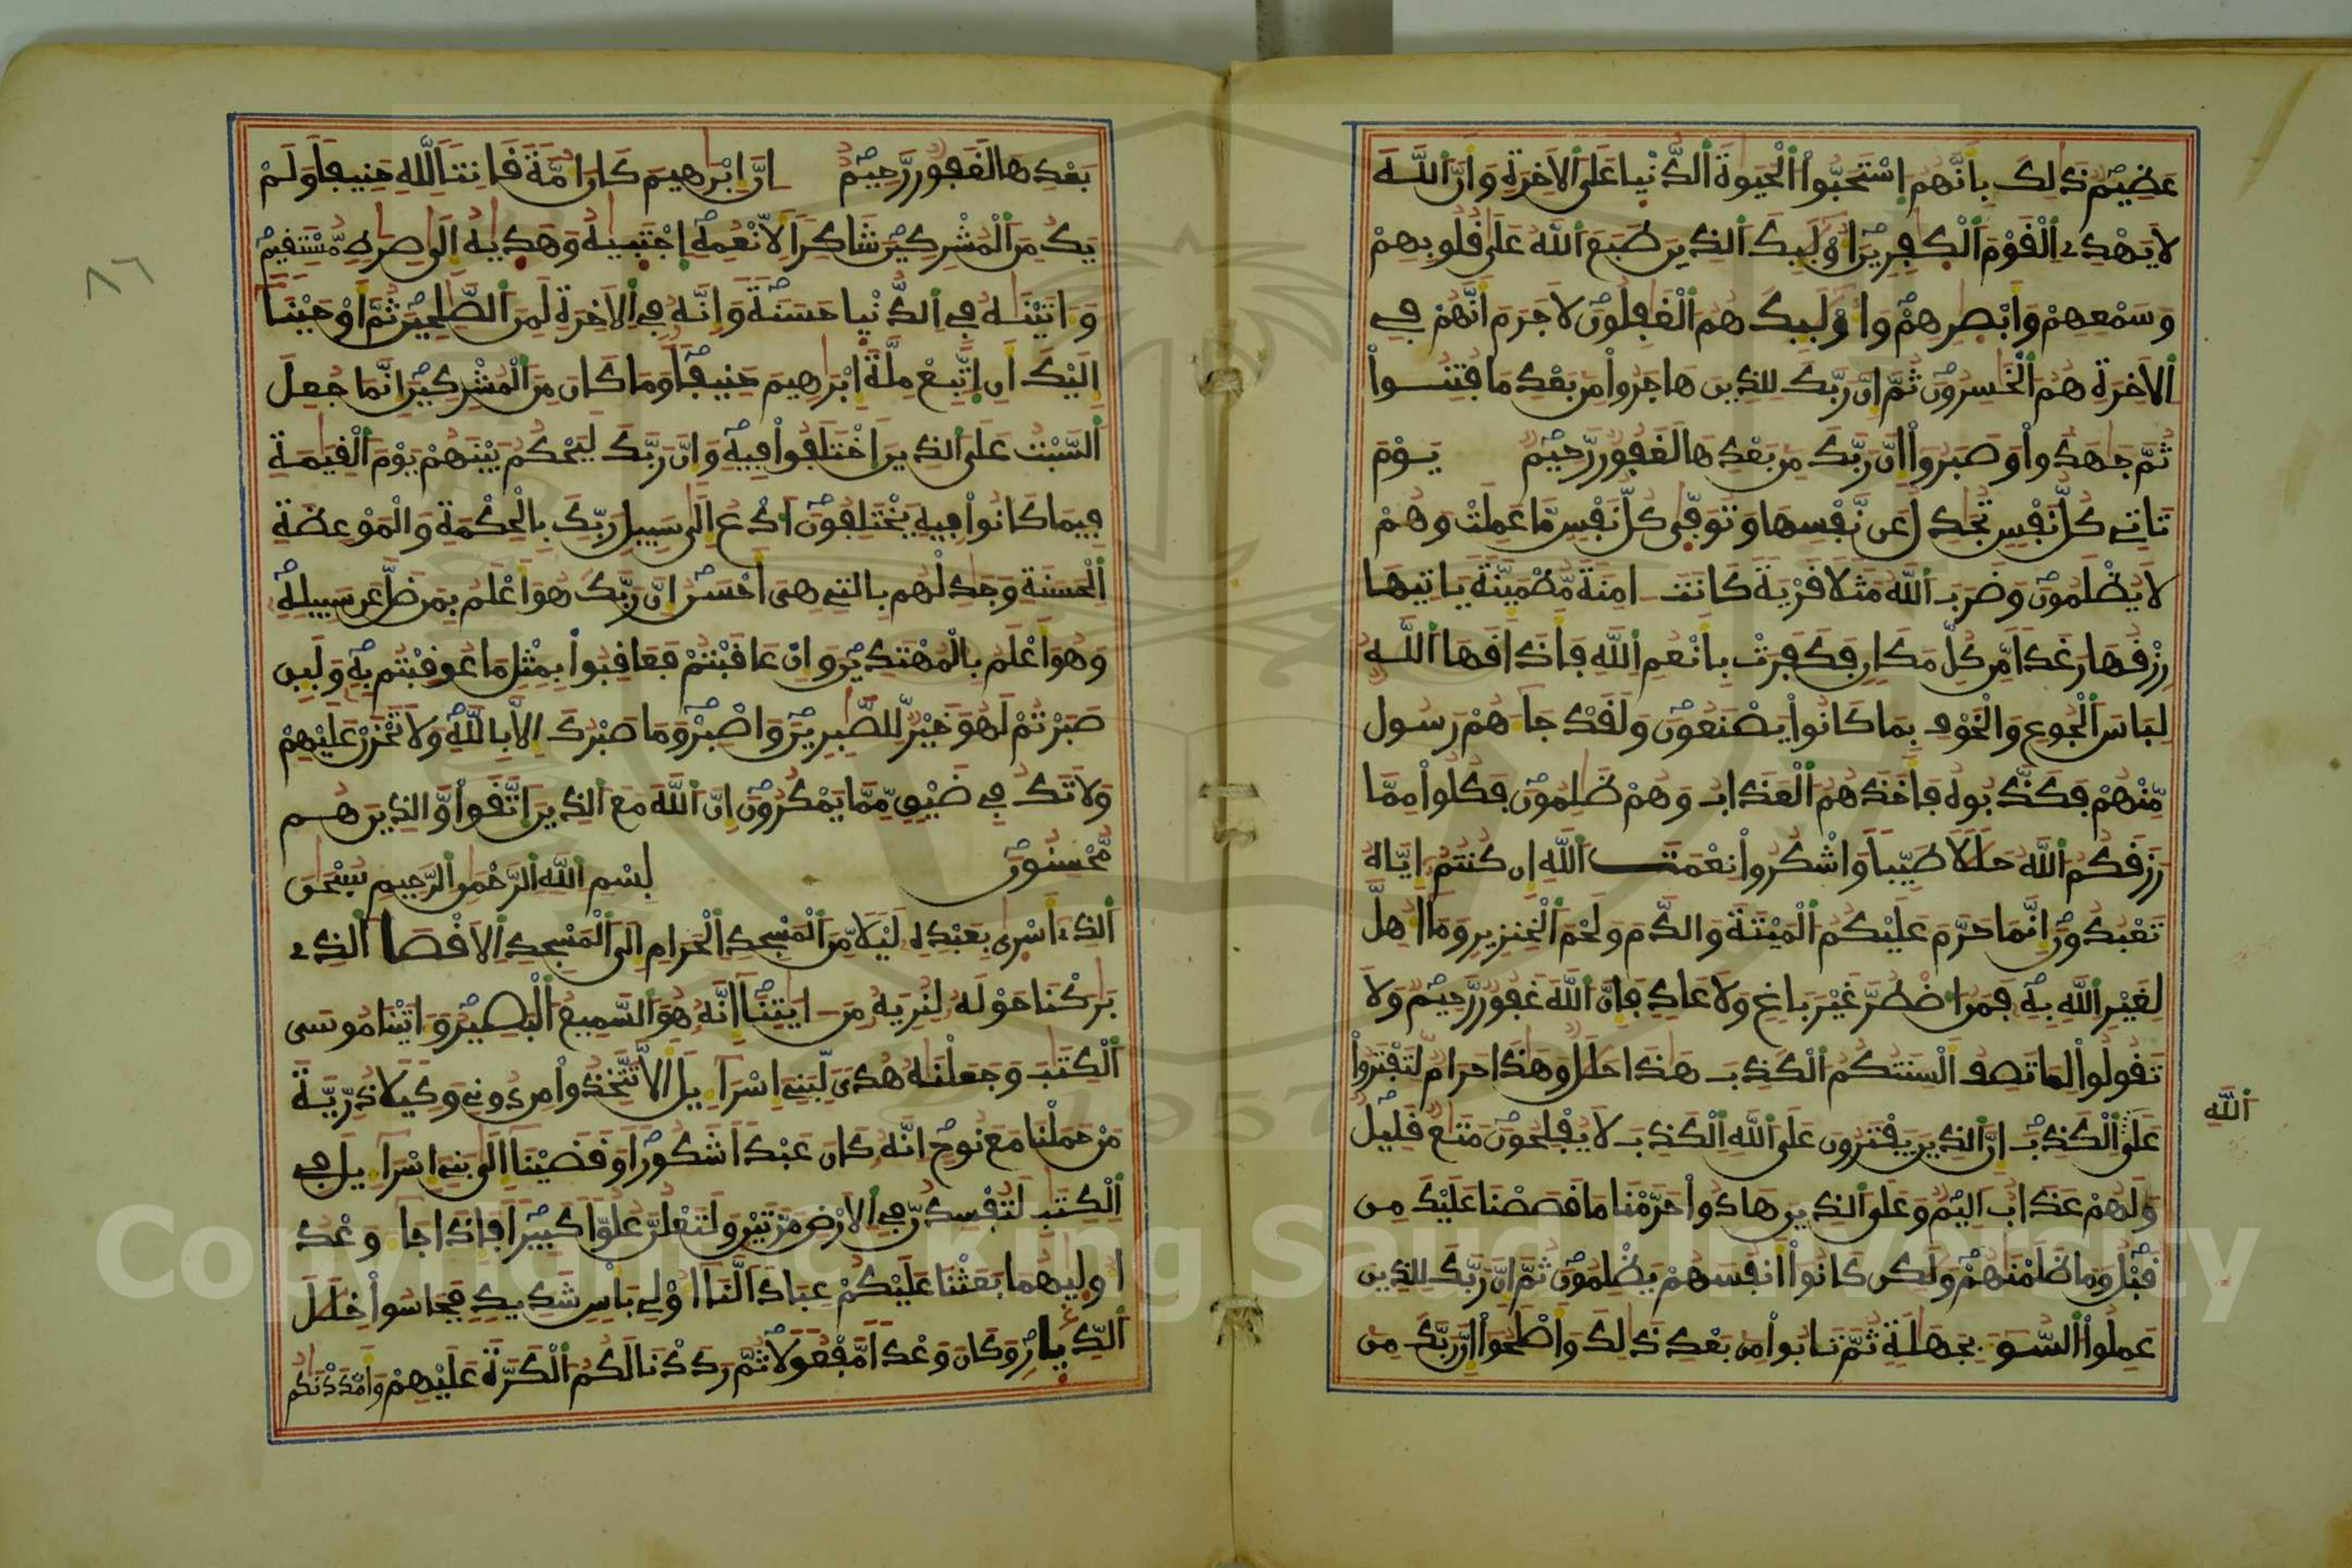 عَظِيمٌ ذَلِكَ بِأَنَّهُمُ اسْتَحَبُّواْ الْحَيَوةَ الدُّنْيا عَلَى الاَخِرَةِ وَأَنَّ اللَّهَ
لاَ يَهْدِے الْقَوْمَ الْكَفِرِينَ أُوْلَيِكَ الذِينَ طَبَعَ اللَّهُ عَلَى قُلُوبِهِمْ
وَسَمْعِهِمْ وَأَبْصَرِهِمْ وَأُوْلَيِكَ هُمُ الْغَفِلُونَ لاَ جَرَمَ أَنَّهُمْ فِے
الاَخِرَةِ هُمُ الْخَسِرُونَ ثُمَّ إِنَّ رَبَّكَ لِلذِينَ هَاجَرُواْ مِنْ بَعْدِ مَا فُتِنُواْ
ثُمَّ جَهَدُواْ وَصَبَرُواْ إِنَّ رَبَّكَ مِنْ بَعْدِهَا لَغَفُورٌ رَّحِيمٌ يَوْمَ
تَاتِے كُلُّ نَفْسٍ تُجَدِلُ عَن نَّفْسِهَا وَتُوَفَّى كُلُّ نَفْسٍ مَّا عَمِلَتْ وَهُمْ
لاَ يُظْلَمُونَ وَضَرَبَ اللَّهُ مَثَلاً قَرْيَةً كَانَتَ امِنَةً مُّطْمَيِنَّةً يَاتِيهَا
رِزْقُهَا رَغَداً مِّن كُلِّ مَكَانٍ فَكَفَرَتْ بِأَنْعُمِ اللَّهِ فَأَذَاقَهَا اللَّهُ
لِبَاسَ الْجُوعِ وَالْخَوْفِ بِمَا كَانُواْ يَصْنَعُونَ وَلَقَدْ جَاَهُمْ رَسُولٌ
مِّنْهُمْ فَكَذَّبُوهُ فَأَخَذَهُمُ الْعَذَابُ وَهُمْ ظَلِمُونَ فَكُلُواْ مِمَّا
رَزَقَكُمُ اللَّهُ حَلَلاً طَيِّباً وَاشْكُرُواْ نِعْمَتَ اللَّهِ إِن كُنتُمُ إِيَّاهُ
تَعْبُدُونَ إِنَّمَا حَرَّمَ عَلَيْكُمُ الْمَيْتَةَ وَالدَّمَ وَلَحْمَ الْخِنزِيرِ وَمَا أُهِلَّ
لِغَيْرِ اللَّهِ بِهِ فَمَنُ اضْطُرَّ غَيْرَ بَاغٍ وَلاَ عَادٍ فَإِنَّ اللَّهَ غَفُورٌ رَّحِيمٌ وَلاَ
تَقُولُواْ لِمَا تَصِفُ أَلْسِنَتُكُمُ الْكَذِبَ هَذَا حَلَلٌ وَهَذَا حَرَامٌ لِّتَفْتَرُواْ
عَلَى الْكَذِبَ إِنَّ الذِينَ يَفْتَرُونَ عَلَى اللَّهِ الْكَذِبَ لاَ يُفْلِحُونَ مَتَعٌ قَلِيلٌ
اللَّهِ
وَلَهُمْ عَذَابٌ أَلِيمٌ وَعَلَى الذِينَ هَادُواْ حَرَّمْنَا مَا قَصَصْنَا عَلَيْكَ مِن
قَبْلُ وَمَا ظَلَمْنَهُمْ وَلَكِن كَانُواْ أَنفُسَهُمْ يَظْلِمُونَ ثُمَّ إِنَّ رَبَّكَ لِلذِينَ
عَمِلُواْ السُّوَ بِجَهَلَةٍ ثُمَّ تَابُواْ مِن بَعْدِ ذَلِكَ وَأَصْلَحُواْ إِنَّ رَبَّكَ مِن
بَعْدِهَا لَغَفُورٌ رَّحِيمٌ إِنَّ إِبْرَهِيمَ كَانَ أُمَّةً قَانِتاً لِّلهِ حَنِيفاً وَلَمْ
يَكُ مِنَ الْمُشْرِكِينَ شَاكِراً لِّأَنْعُمِهِ اِجْتَبَيهُ وَهَدَيهُ إِلَى صِرَطٍ مُّسْتَقِيمٍ
وَاتَيْنَهُ فِے الدُّنْيا حَسَنَةً وَإِنَّهُ فِے الاَخِرَةِ لَمِنَ الصَّلِحِينَ ثُمَّ أَوْحَيْنَا
إِلَيْكَ أَنِ اِتَّبِعْ مِلَّةَ إِبْرَهِيمَ حَنِيفاً وَمَا كَانَ مِنَ الْمُشْرِكِينَ إِنَّمَا جُعِلَ
السَّبْتُ عَلَى الذِينَ اخْتَلَفُواْ فِيهِ وَإِنَّ رَبَّكَ لَيَحْكُمُ بَيْنَهُمْ يَوْمَ الْقِيَمَةِ
فِيمَا كَانُواْ فِيهِ يَخْتَلِفُونَ اُدْعُ إِلَى سَبِيلِ رَبِّكَ بِالْحِكْمَةِ وَالْمَوْعِظَةِ
الْحَسَنَةِ وَجَدِلْهُم بِالتِے هِىَ أَحْسَنُ إِنَّ رَبَّكَ هُوَ أَعْلَمُ بِمَن ضَلَّ عَن سَبِيلِهِ
وَهُوَ أَعْلَمُ بِالْمُهْتَدِينَ وَإِنْ عَاقَبْتُمْ فَعَاقِبُواْ بِمِثْلِ مَا عُوقِبْتُم بِهِ وَلَيِن
صَبَرْتُمْ لَهُوَ خَيْرٌ لِّلصَّبِرِينَ وَاصْبِرْ وَمَا صَبْرُكَ إِلاَّ بِاللَّهِ وَلاَ تَحْزَنْ عَلَيْهِمْ
وَلاَ تَكُ فِے ضَيْقٍ مِّمَّا يَمْكُرُونَ إِنَّ اللَّهَ مَعَ الذِينَ اتَّقَواْ وَّالذِينَ هُم
مُّحْسِنُونَ بِسْمِ اللَّهِ الرَّحْمَنِ الرَّحِيمِ سُبْحَنَ
الذِے أَسْرَى بِعَبْدِهِ لَيْلاً مِّنَ الْمَسْجِدِ الْحَرَامِ إِلَى الْمَسْجِدِ الاَقْصَا الذِے
بَرَكْنَا حَوْلَهُ لِنُرِيَهُ مِنَ ايَتِنَا إِنَّهُ هُوَ السَّمِيعُ الْبَصِيرُ وَاتَيْنَا مُوسَى
الْكِتَبَ وَجَعَلْنَهُ هُدىً لِّبَنِے إِسْرَاَيِلَ أَلاَّ تَتَّخِذُواْ مِن دُونِے وَكِيلاً ذُرِّيَّةَ
مَنْ حَمَلْنَا مَعَ نُوحٍ إِنَّهُ كَانَ عَبْداً شَكُوراً وَقَضَيْنَا إِلَى بَنِے إِسْرَاَيِلَ فِے
الْكِتَبِ لَتُفْسِدُنَّ فِے الاَرْضِ مَرَّتَيْنِ وَلَتَعْلُنَّ عُلُوّاً كَبِيراً فَإِذَا جَاَ وَعْدُ
أُولَيهُمَا بَعَثْنَا عَلَيْكُمْ عِبَاداً لَّنَا أُوْلِے بَأْسٍ شَدِيدٍ فَجَاسُواْ خِلَلَ
الدِّيارِ وَكَانَ وَعْداً مَّفْعُولاً ثُمَّ رَدَدْنَا لَكُمُ الْكَرَّةَ عَلَيْهِمْ وَأَمْدَدْنَكُم
Copyright © King Saud University
1957